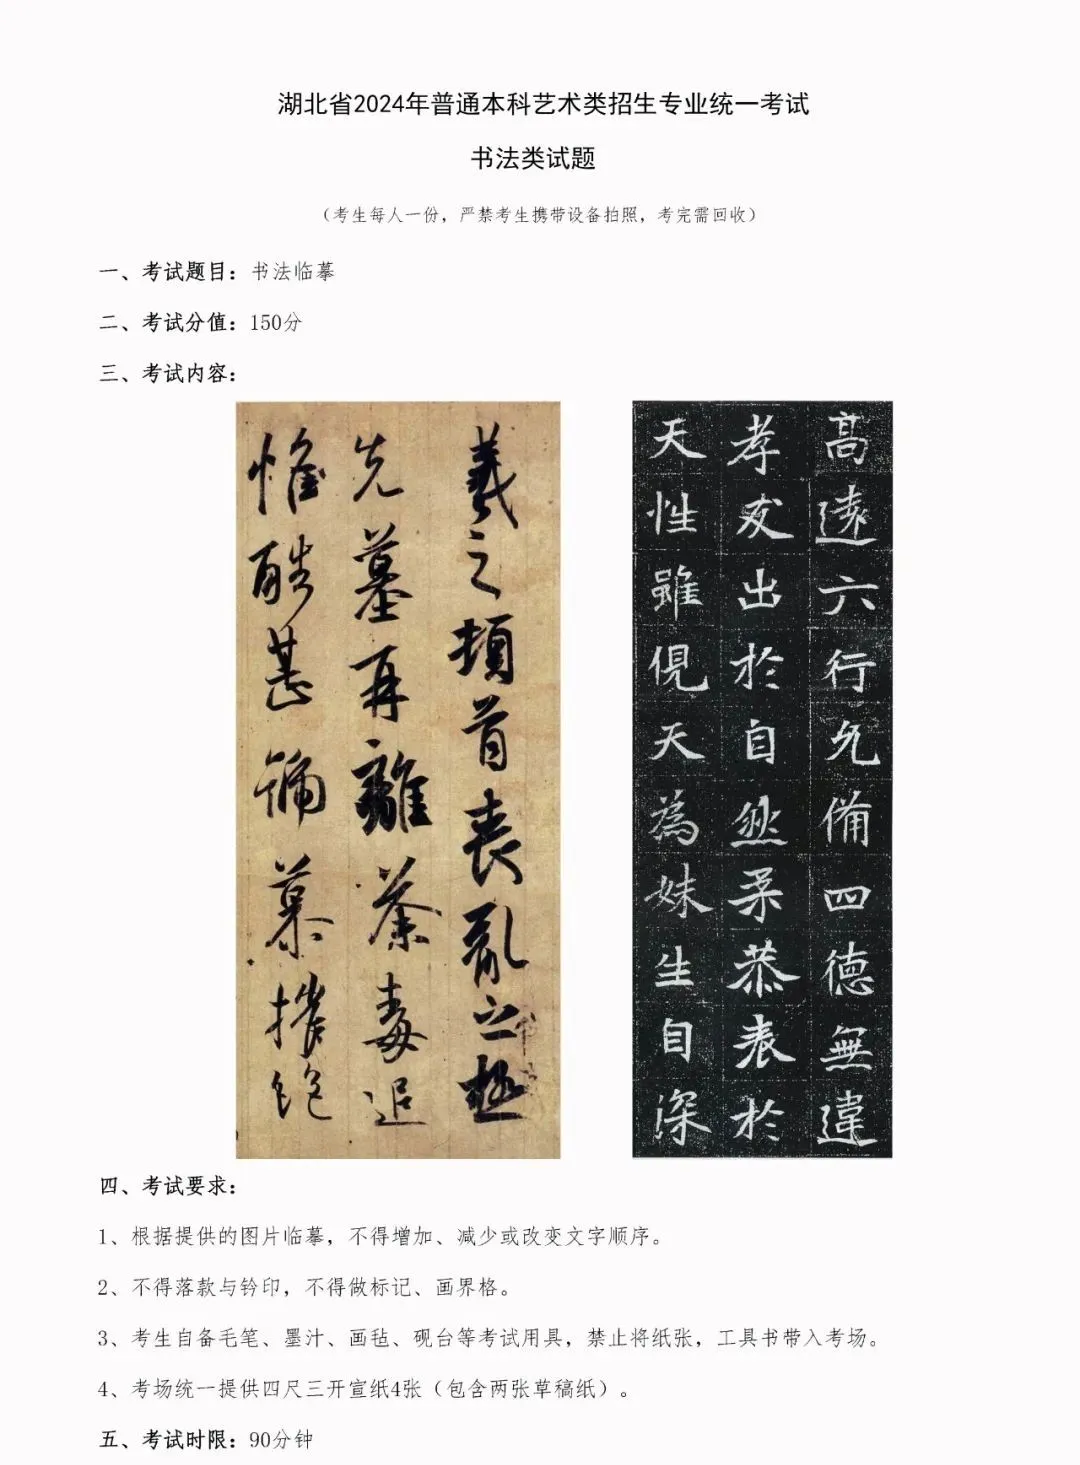 湖北省2024年普通本科艺术类招生专业统一考试
书法类试题
（考生每人一份，严禁考生携带设备拍照，考完需回收）
一、考试题目：书法临摹
二、考试分值：150分
三、考试内容：
羲之頓首喪亂之極
先墓再離荼毒追
惟酷甚號慕摧絕
高遠六行允備四德無違
孝友出於自然柔恭表於
天性雖俔天為妹生自深
四、考试要求：
1、根据提供的图片临摹，不得增加、减少或改变文字顺序。
2、不得落款与钤印，不得做标记、画界格。
3、考生自备毛笔、墨汁、画毡、砚台等考试用具，禁止将纸张，工具书带入考场。
4、考场统一提供四尺三开宣纸4张（包含两张草稿纸）。
五、考试时限：90分钟